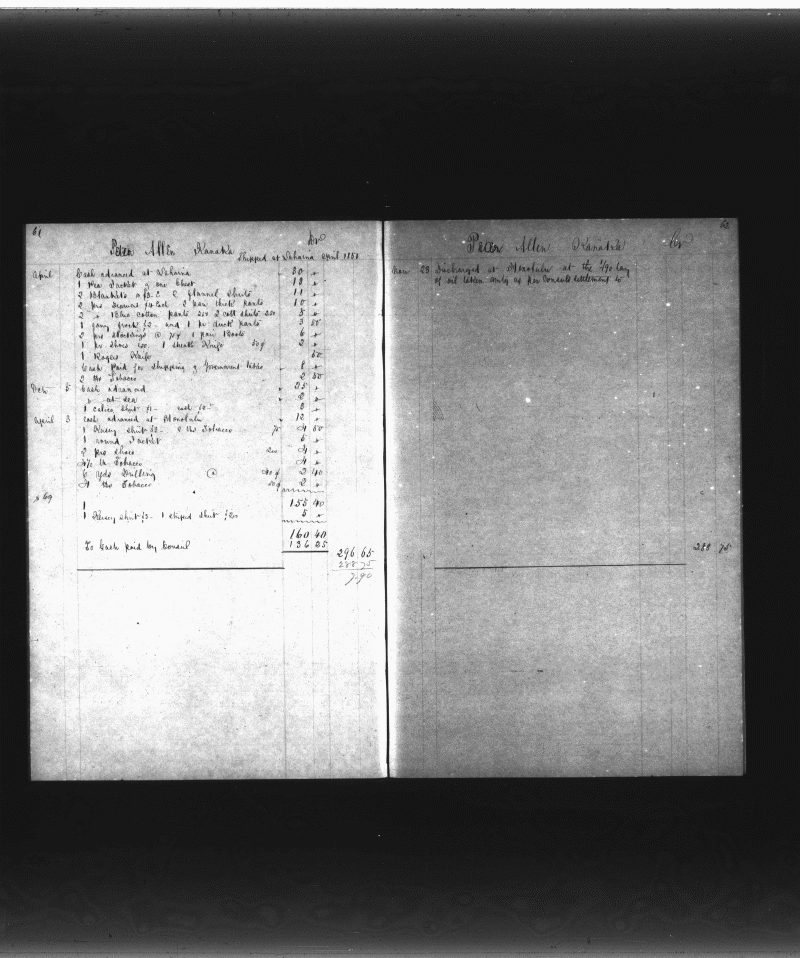 61
Peter Allen Kanaka Dr
Shipped at Lahaina April 1858
April Cash advanced at Lahaina 30 "
1 Pea Jacket & one Chest 18 "
2 Blankets 2 flannel shirts 11 "
2 prs Drawers 2 pair thick pants 10 "
2 " Blue cotton pants 2 cott shirts 5 "
1 frock $2- and 1 pr duck pants 3 50
2 prs Stockings @ 1 pair Boots 6 "
1 pr shoes 1 sheath Knife 2 "
1 Rogers Knife 50
Cash paid for Shipping & Government 8 "
2 lbs Tobacco 50
5 Cash advanced 25 "
" at sea 2 "
1 calico shirt cash
April 3 Cash advanced at Honolulu 12 "
1 Kersey shirt $3- lbs Tobacco 75 4 50
1 round Jacket 6 "
2 prs shoes 200 4 "
lb Tobacco 4 "
6 yds Drilling @ 40¢ 2 40
4 lbs Tobacco 50¢ 2 "
155 40
1 Kersey shirt $3- 1 striped shirt 5 "
160 40
To Cash paid by Consul 136 25
296 65
288 75
7.90
62
Peter Allen Kanaka Cr
23 Discharged at Honolulu at the 1/90 Lay
of oil taken only as per Consuls settlement to
288 75